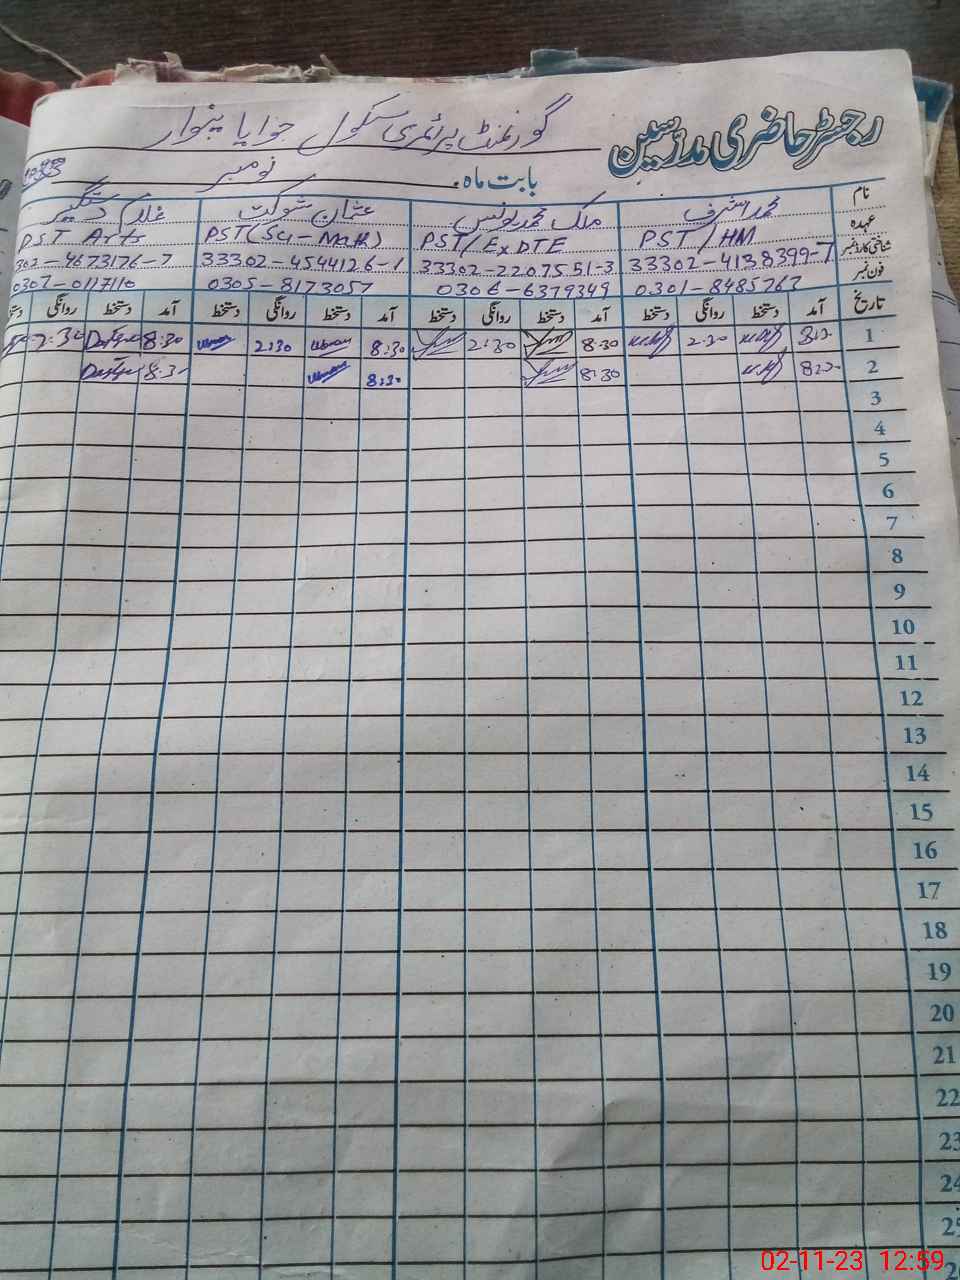 رجسٹر حاضری مدرسین
گورنمنٹ پرائمری سکول جوایا
بابت ماہ نومبر
نام محمد اشرف ملک محمد یونس عثمان شوکت غلام دستگیر
عہدہ PST/HM PST/ExDTE PST(Sci-Math) PST Arts
شناختی کارڈ نمبر 33302-4138399-7 33302-2207551-3 33302-4544126-1 302-4673176-7
فون نمبر 0301-8485767 0306-6379349 0305-8173057 0307-0117110
تاریخ آمد دستخط روانگی دستخط آمد دستخط روانگی دستخط آمد دستخط روانگی دستخط آمد دستخط روانگی
1 2:30 8:30 2:30 8:30 2:30 8:30 2:30
2 8:30 8:30
3
4
5
6
7
8
9
10
11
12
13
14
15
16
17
18
19
20
21
22
23
24
02-11-23 12:59